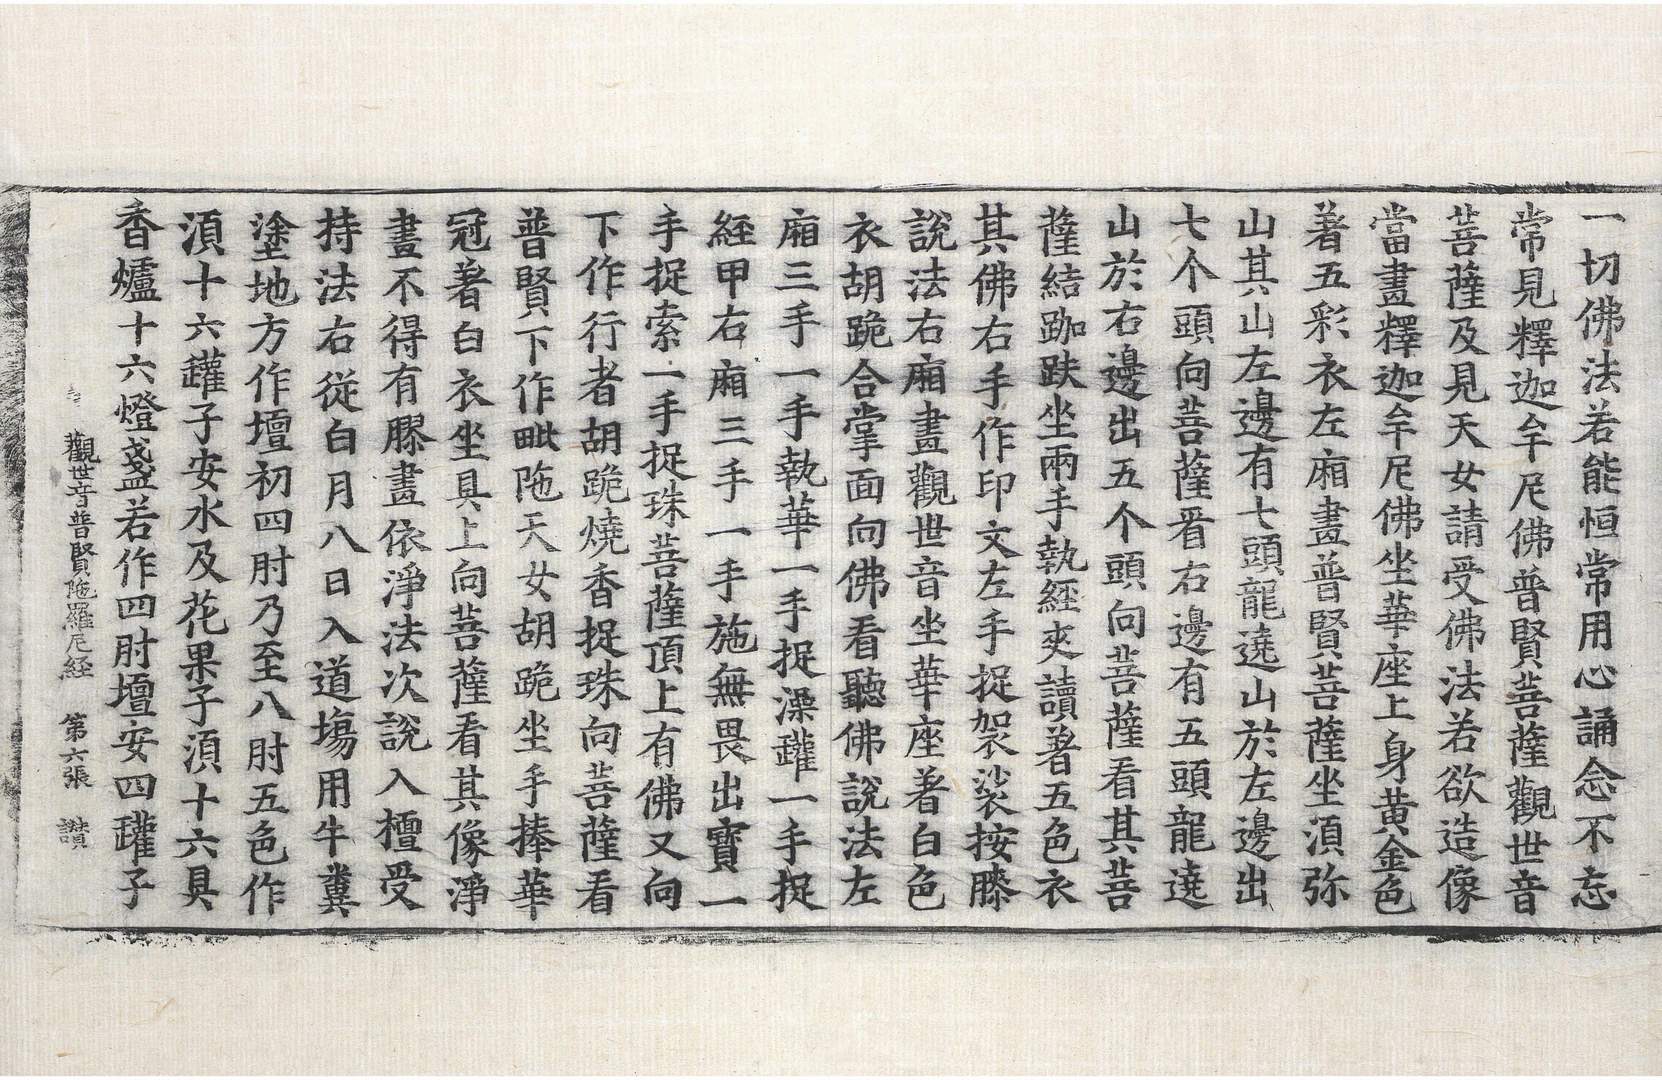 一切佛法若能恒常用心誦念不忘
常見釋迦牟尼佛普賢菩薩觀世音
菩薩及見天女請受佛法若欲造像
當畫釋迦牟尼佛坐華座上身黃金色
著五彩衣左廂畫普賢菩薩坐湏弥
山其山左邊有七頭龍遶山於左邊出
七个頭向菩薩看右邊有五頭龍遶
山於右邊出五个頭向菩薩看其菩
薩結跏趺坐兩手執經夾讀著五色衣
其佛右手作印文左手捉袈裟按膝
說法右廂畫觀世音坐華座著白色
衣胡跪合掌面向佛看聽佛說法左
廂三手一手執華一手捉澡鑵一手捉
經甲右廂三手一手施無畏出寶一
手捉索一手捉珠菩薩頂上有佛又向
下作行者胡跪燒香捉珠向菩薩看
普賢下作毗陁天女胡跪坐手捧華
冠著白衣坐具上向菩薩看其像淨
畫不得有膠畫依淨法次說入檀受
持法右從白月八日入道場用牛糞
塗地方作壇初四肘乃至八肘五色作
湏十六鑵子安水及花果子湏十六具
香爐十六燈盞若作四肘壇安四鑵子
觀世音普賢陁羅尼經 第六張 讃